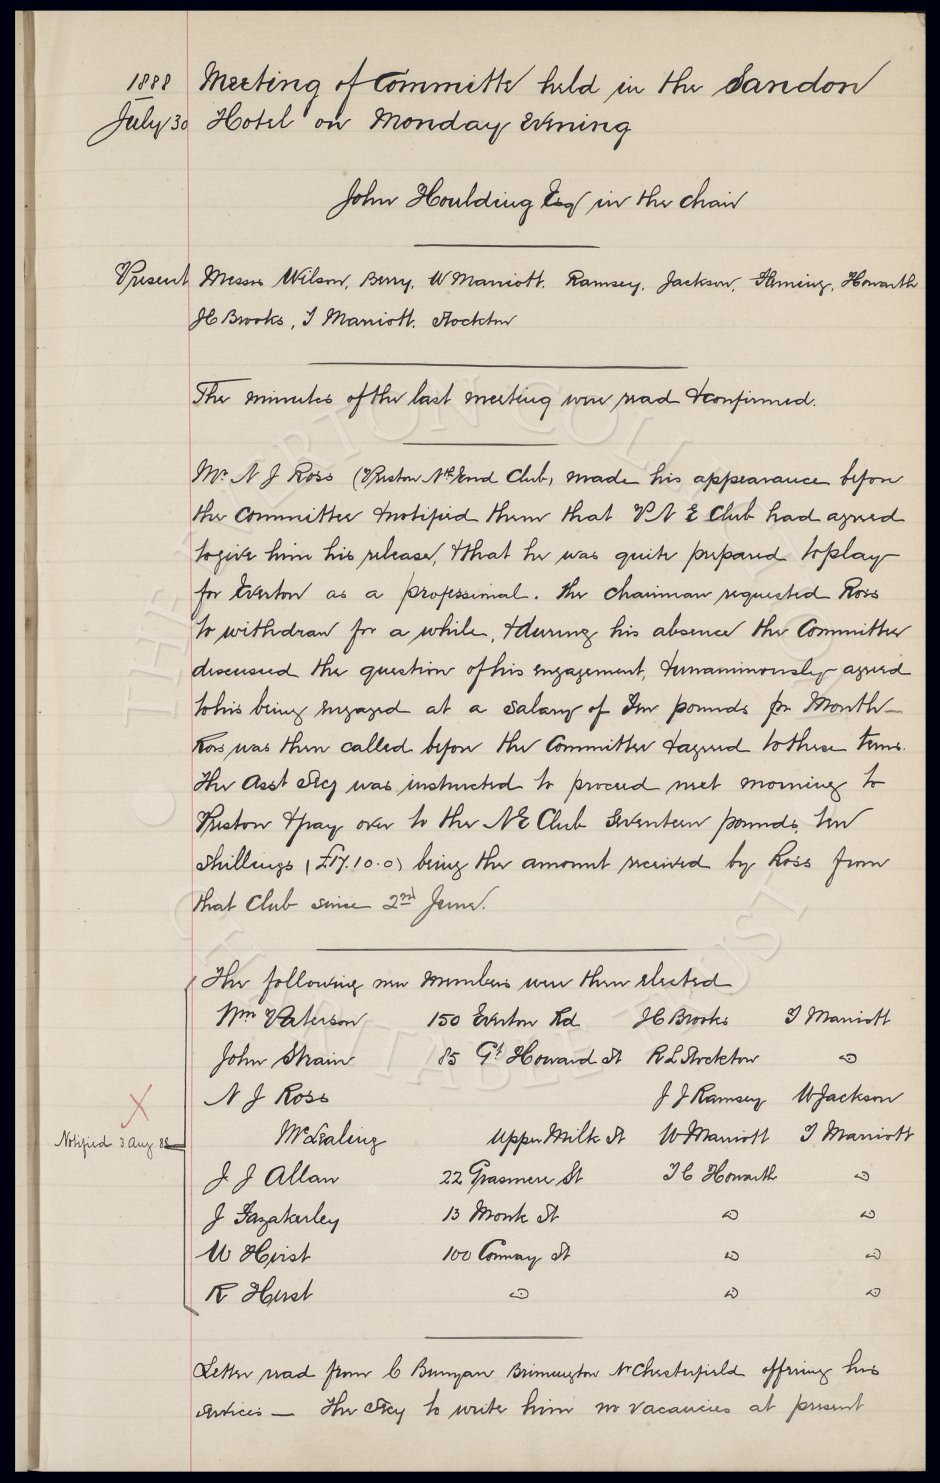 1888 Meeting of Committee held in the Sandon
July 30 Hotel on Monday Evening
John Houlding Esq in the chair
Present Messrs Wilson, Berry, W Marriott, Ramsey, Jackson, Fleming, Howarth
JC Brooks, T Marriott, Stockton
The minutes of the last meeting were read & confirmed.
Mr. N J Ross (Preston Nth End Club) made his appearance before
the Committee & notified them that P N E Club had agreed
to give him his release, & that he was quite prepared to play
for Everton as a professional. The chairman requested Ross
to withdraw for a while, & during his absence the Committee
discussed the question of his engagement, & unanimously agreed
to his being engaged at a salary of Ten pounds per Month –
Ross was then called before the Committee & agreed to these terms.
The Asst Secy was instructed to proceed next morning to
Preston & pay over to the N E Club Seventeen pounds, ten
shillings (£17.10.0) being the amount received by Ross from
that Club since 2nd June.
The following new members were then elected
Wm Paterson 150 Everton Rd JC Brooks T Marriott
John Strain 85 Gt Howard St R L Stockton Do
N J Ross J J Ramsey W Jackson
Notified 3 Aug 88 McLealing Upper Milk St W Marriott T Marriott
J J Allan 22 Grasmere St T C Howarth Do
J Fazakerley 13 Monk St Do Do
W Hirst 100 Conway St Do Do
R Hirst Do Do Do
Letter read from C Bunyan Brimington Nr Chesterfield offering his
services — The Secy to write him no vacancies at present
THE EVERTON COLLECTION
CHARITABLE TRUST